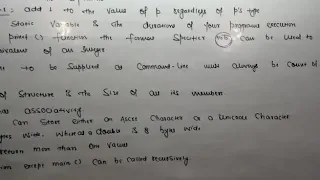 -1: add 1 to the value of p regardless of p's type
Static Variable is the duration of your programs execution
printf() function the format Specifier can be used to
equivalent of an Integer
to be Supplied as Command-line must always be count of
of Structure is the Size of all its member
has associativity
Can Store either an Ascci Character or a Unicode Character
bytes Wide. Whereas a double is 8 bytes wide
return more than one value
except main() Can be called recursively.